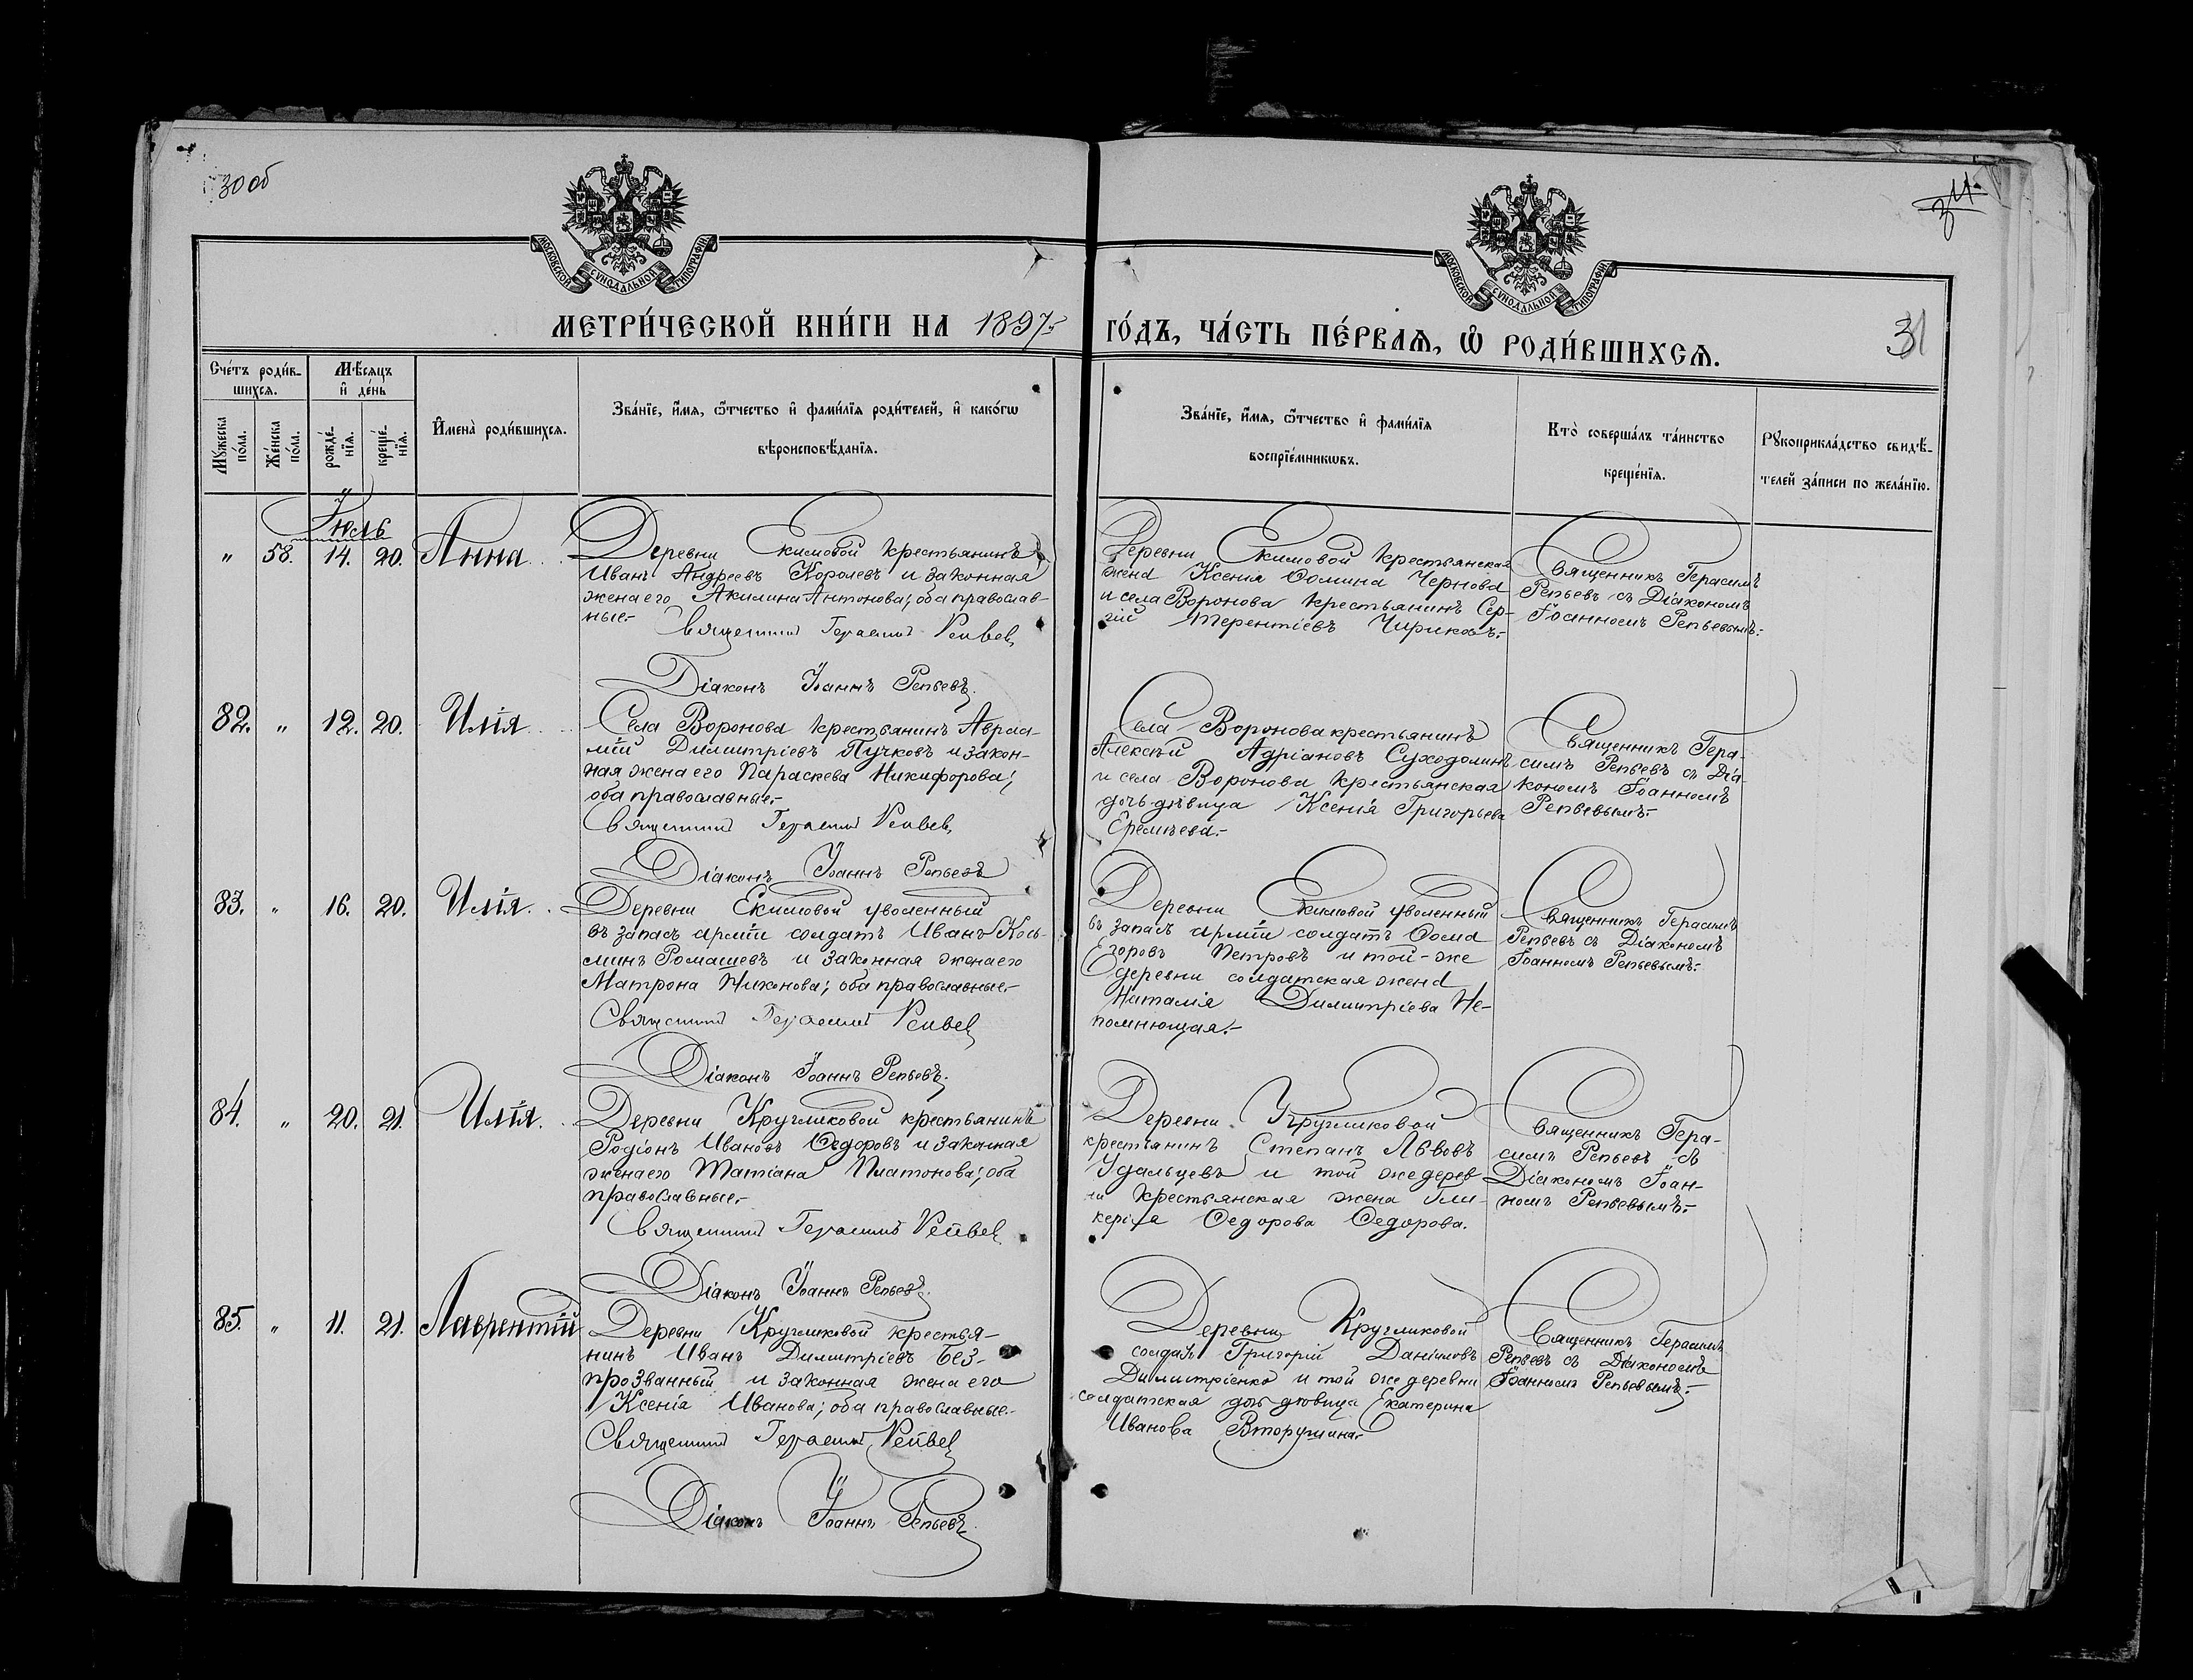 30 об
31
МОСКОВСКОЙ СѴНОДАЛЬНОЙ ТИПОГРАФІИ
МОСКОВСКОЙ СѴНОДАЛЬНОЙ ТИПОГРАФІИ
МЕТРИ́ЧЕСКОЙ КНИ́ГИ НА 1897
ГО́ДЪ, ЧА́СТЬ ПЕ́РВАѦ, Ѡ҆ РОДИ́ВШИХСѦ.
Сче́тъ роди́в-
шихсѧ.
Мѣ́сѧцъ
и҆ де́нь
Мꙋ́жеска
по́ла.
Же́нска
по́ла.
рожде́-
нїѧ.
креще́-
нїѧ.
И҆мена̀ роди́вшихсѧ.
Зва́нїе, и҆́мѧ, ѻ҆́тчество и҆ фами́лїѧ роди́телей, и҆ како́гѡ
вѣроисповѣ́данїѧ.
Зва́нїе, и҆́мѧ, ѻ҆́тчество и҆ фами́лїѧ
воспрїе́мникѡвъ.
Кто̀ соверша́лъ та́инство
креще́нїѧ.
Рꙋкоприкла́дство свидѣ́-
телей за́писи по жела́нїю.
Іюль
" 58. 14. 20. Анна
Деревни Екимовой крестьянинъ
Иванъ Андреевъ Королевъ и законная
жена его Акилина Антонова; оба православ-
ные.-
Священникъ Герасимъ Репьев
Діаконъ Іоаннъ Репьевъ.
Деревни Екимовой крестьянская
жена Ксенія Ѳомина Чернова
и села Воронова крестьянинъ Сер-
гій Терентіевъ Чириковъ.-
Священникъ Герасимъ
Репьевъ съ Діакономъ
Іоанномъ Репьевымъ.-
82. " 12. 20. Илія
Села Воронова крестьянинъ Авраа-
мій Димитріевъ Пучковъ и закон-
ная жена его Параскева Никифорова;
оба православные.-
Священникъ Герасимъ Репьев
Діаконъ Іоаннъ Репьевъ
Села Воронова крестьянинъ
Алексѣй Адріановъ Суходолинъ
и села Воронова крестьянская
дочь-дѣвица Ксенія Григорьева
Еремѣева.-
Священникъ Гера-
симъ Репьевъ съ Діа-
кономъ Іоанномъ
Репьевымъ.-
83. " 16. 20. Илія
Деревни Екимовой уволенный
въ запасъ арміи солдатъ Иванъ Кось-
минъ Ромашевъ и законная жена его
Матрона Никонова; оба православные.-
Священникъ Герасимъ Репьев
Діаконъ Іоаннъ Репьевъ.
Деревни Екимовой уволенный
въ запасъ арміи солдатъ Ѳома
Егоровъ Петровъ и той-же
деревни солдатская жена
Наталія Димитріева Не-
помнющая.-
Священникъ Герасимъ
Репьевъ съ Діакономъ
Іоанномъ Репьевымъ.-
84. " 20. 21. Илія
Деревни Кругликовой крестьянинъ
Родіонъ Ивановъ Ѳедоровъ и законная
жена его Татіана Платонова; оба
православные.-
Священникъ Герасимъ Репьев
Діаконъ Іоаннъ Репьевъ.
Деревни Кругликовой
крестьянинъ Степанъ Львовъ
Удальцевъ и той же дерев-
ни крестьянская жена Гли-
керія Ѳедорова Ѳедорова.
Священникъ Гера-
симъ Репьевъ съ
Діакономъ Іоан-
номъ Репьевымъ.-
85. " 11. 21. Лаврентій
Деревни Кругликовой крестья-
нинъ Иванъ Димитріевъ Без-
прозванный и законная жена его
Ксенія Иванова; оба православные.-
Священникъ Герасимъ Репьев
Діаконъ Іоаннъ Репьевъ.
Деревни Кругликовой
солдатъ Григорій Даніиловъ
Димитріенко и той же деревни
солдатская дочь дѣвица Екатерина
Иванова Вторушина.-
Священникъ Герасимъ
Репьевъ съ Діакономъ
Іоанномъ Репьевымъ.-